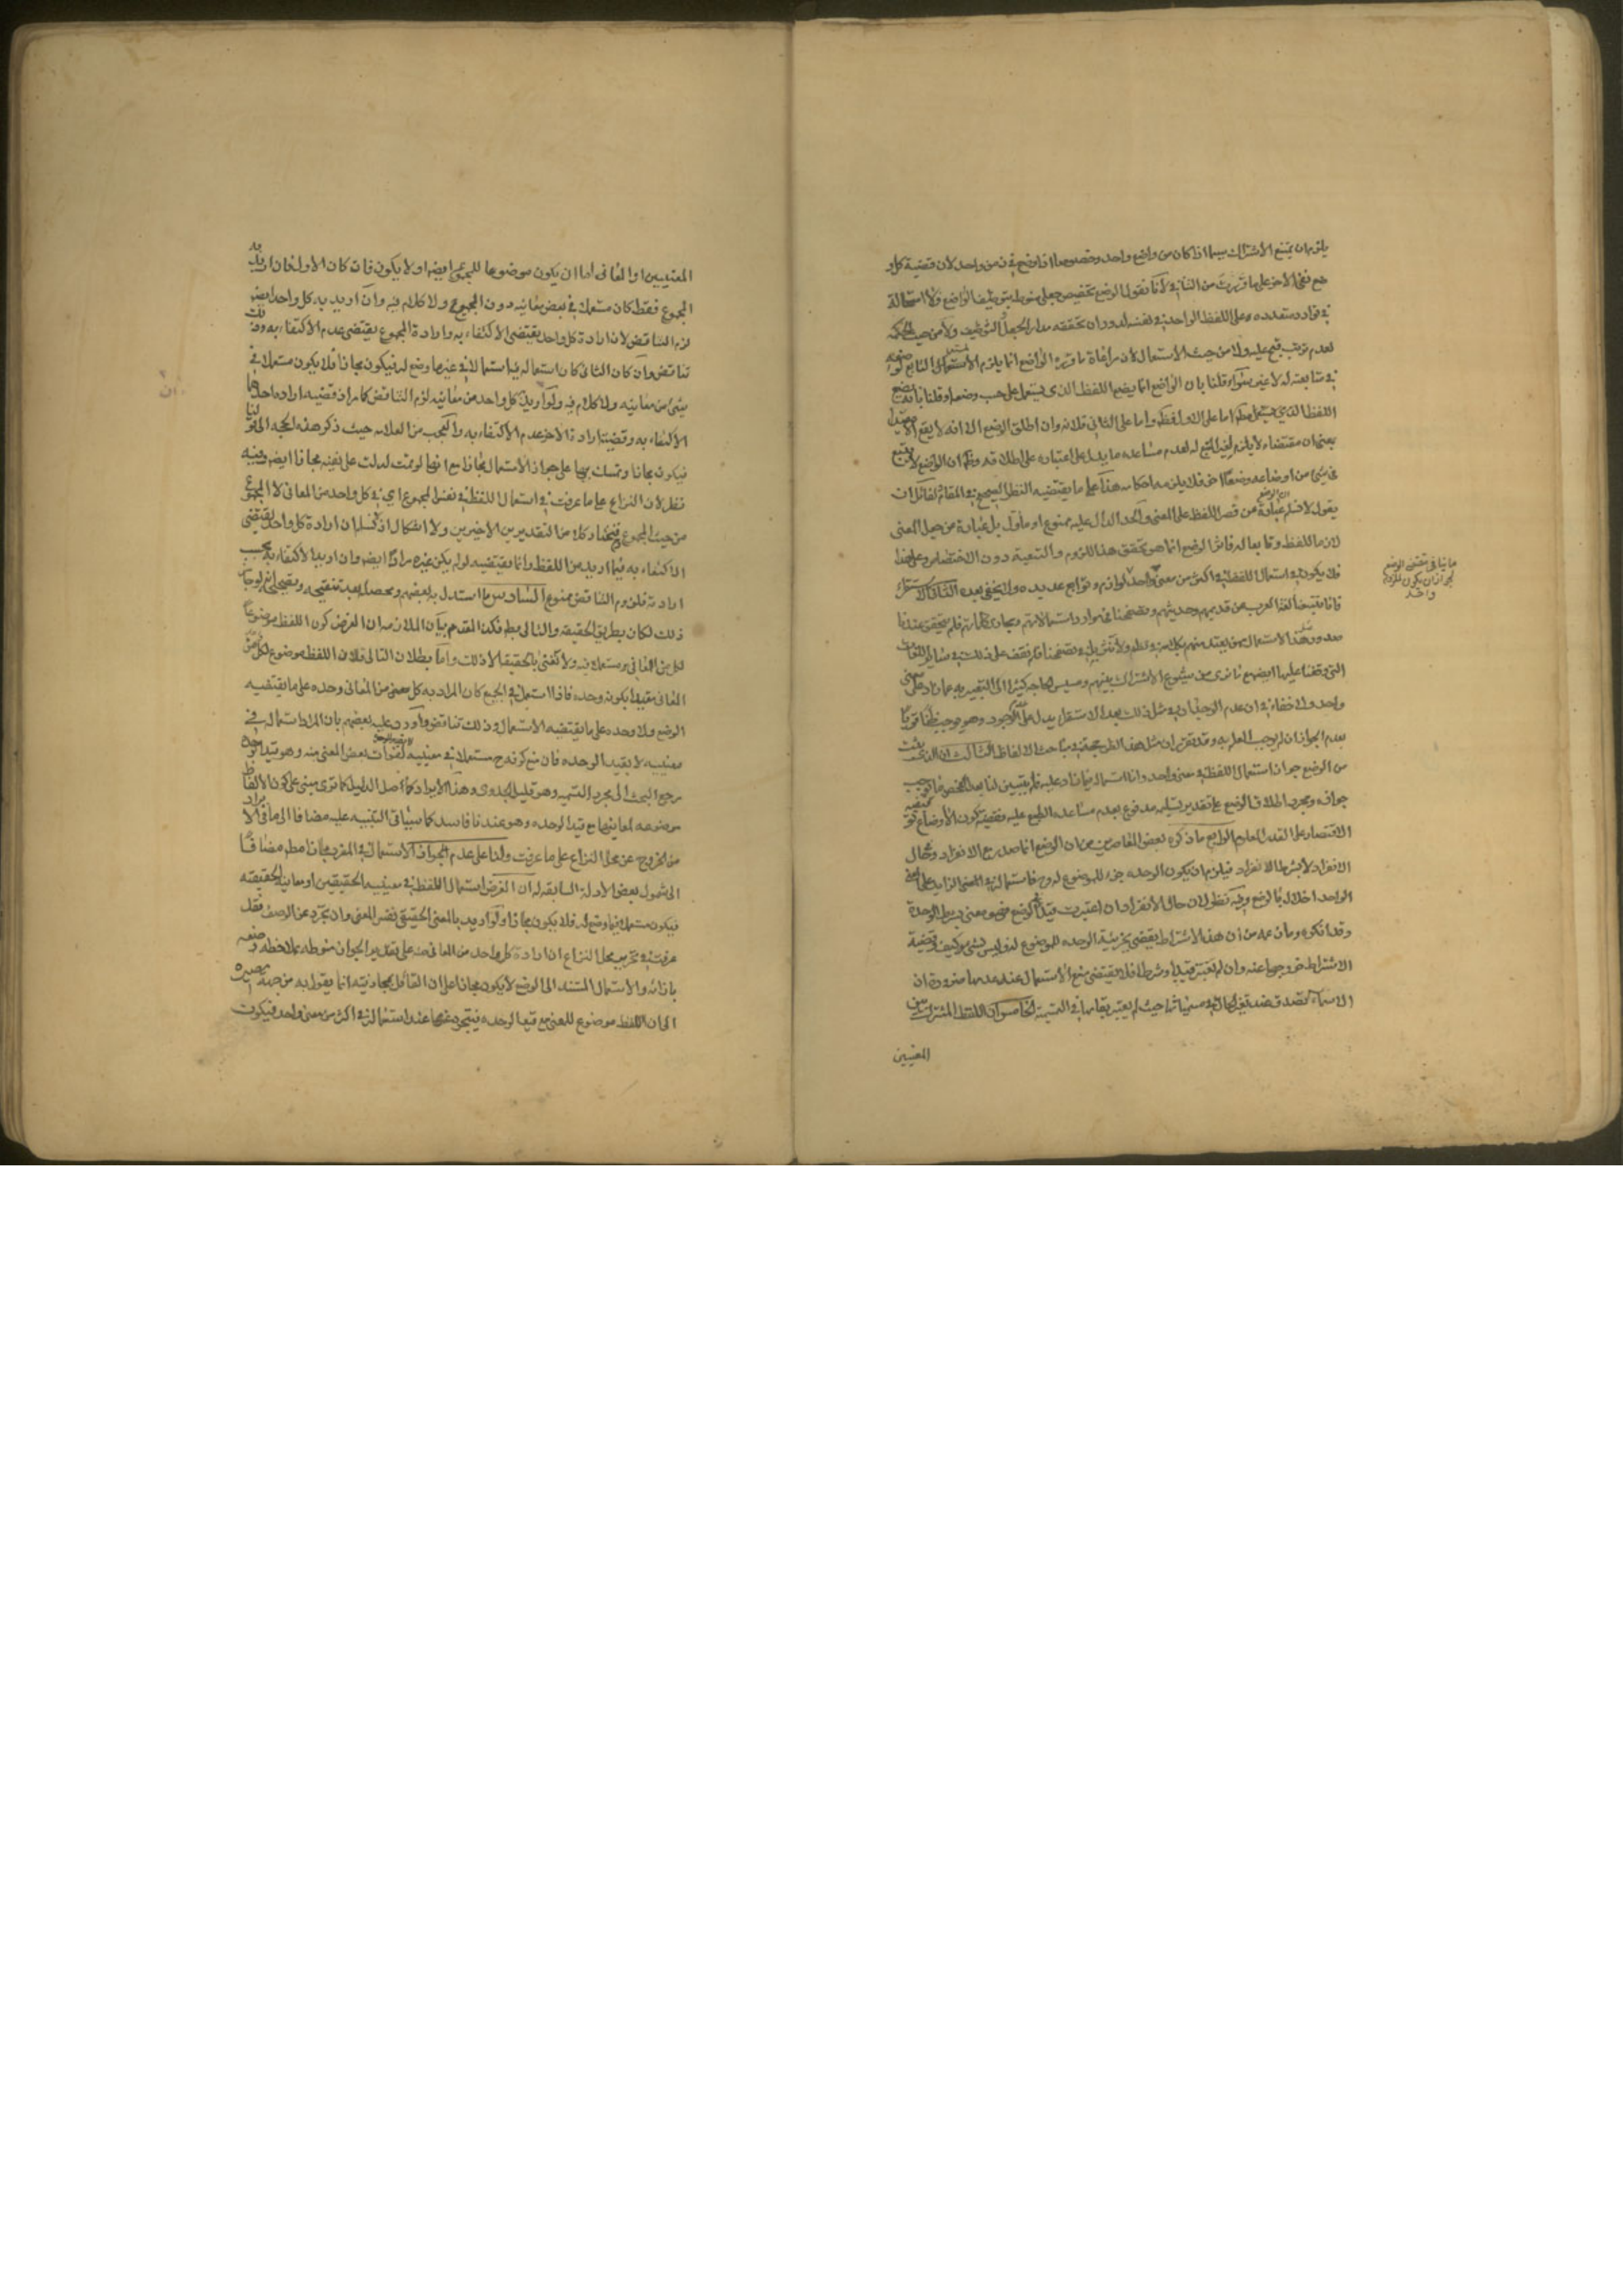 يلزم ان يمتنع الاشتراك سيما اذا كان من واضع واحد وخصوصا اذا وضع في زمن واحد لان قضية كل و
ضع نفي الاخر على ما قررت من التنافي لانا نقول الوضع تخصيص جعلي منوط بتوظيف الواضع ولا استحالة
في توارد متعدده على اللفظ الواحد في نفسه لدوران تحققه مدار الجعل التوظيف ولا من حيث الحكمه
لعدم ترتب قبح عليه ولا من حيث الاستعمال لان مراعاة ما قرره الواضع انما يلزم المستعمل التابع له في وضعه
في متابعته له لا غير سواء قلنا بان الواضع انما يضع اللفظ الذي يستعمل على حسب وضعه او قلنا بانه يضع
اللفظ الذي يستعمل مطلقا اما على الاول فظ واما على الثاني فلانه وان اطلق الوضع الا انه لا يقع الا مقيدا
بمعنى ان مقتضاه لا يلزم لغير المتبع له لعدم مساعده ما يدل على اعتباره على اطلاقه وظ ان الواضع لا يتبع
في شئ من اوضاعه وضعا اخر فلا يلزمه احكامه هذا على ما يقتضيه النظر الصحيح في المقام لقائل ان
يقول لا نسلم ان الوضع عبارة عن قصر اللفظ على المعنى والحد الدال عليه ممنوع او مأول بل عبارة عن جعل المعنى
لازما للفظ وتابعا له فاثر الوضع انما هو تحقق هذا اللزوم والتبعية دون الاختصاص وعلى هذا
فلا يكون في استعمال اللفظ في اكثر من معنى واحد لوازم وتوابع عديده ولا يخفى بعده الثاني الاستقراء
فانا تتبعنا لغة العرب من قديمهم وحديثهم وتصفحنا في موارد استعمالاتهم ومجاري كلماتهم فلم يتحقق عندنا
صدور مثل هذا الاستعمال ممن يعتد منهم بكلامه في نظم ولا نثر بل تصفحنا فلم نقف على ذلك في سائر اللغات
التي وقفنا عليها ايضا مع ما نرى من شيوع الاشتراك بينهم ومسيس الحاجه كثيرا الى التعبير به عما زاد على معنى
واحد ولا خفاء في ان عدم الوجدان في مثل ذلك بعد الاستقراء يدل على عدم الوجود وهو يوجب ظنا قويا
بعدم الجواز ان لم يوجب العلم به وقد تقرر ان مثل هذا الظن حجة في مباحث الالفاظ الثالث ان الذي ثبت
من الوضع جواز استعمال اللفظ في معنى واحد واما استعماله فيما زاد عليه فلم يتبين لنا بعد الفحص ما يوجب
جوازه ومجرد اطلاق الوضع على تقدير تسليمه مدفوع بعدم مساعده الطبع عليه وقضيته كون الاوضاع توقيفيه
الاقتصار على القدر المعلوم الرابع ما ذكره بعض المعاصرين من ان الوضع انما صدر مع الانفراد وفي حال
الانفراد لا بشرط الانفراد فيلزم ان يكون الوحده جزء للموضوع له وح فاستعماله في المعنى الزايد على المعنى
الواحد اخلال بالوضع وفيه نظر لان حال الانفراد ان اعتبرت قيدا في الوضع فهو معنى بشرط الوحدة
وقد انكره وما زعمه من ان هذا الاشتراط يقتضي بجزئية الوحده للموضوع له فليس بشئ كيف وقضية
الاشتراط خروجها عنه وان لم يعتبر قيدا وشرطا فلا يقتضي منع الاستعمال عند عدمها ضرورة ان
الاسماء تصدق عند تغير الحال في مسمياتها حيث لم يعتبر بقاءها في التسمية الخامس ان اللفظ المشترك بين
المعنيين
ما ينافى مقتضى الوضع
لجواز ان يكون للزوم
واحد
المعنيين او المعانى اما ان يكون موضوعا للمجموع ايضا او لا يكون فان كان الاول فان اريد به
المجموع فقط كان مستعملا في بعض معانيه دون المجموع ولا كلام فيه وان اريد به كل واحد ايضا
لزم التناقض لان ارادة كل واحد يقتضي الاكتفاء به وارادة المجموع يقتضي عدم الاكتفاء به وذلك
تناقض وان كان الثاني كان استعماله فيه استعمالا في غير ما وضع له فيكون مجازا فلا يكون مستعملا في
شئ من معانيه ولا كلام فيه ولو اريد كل واحد من معانيه لزم التناقض كما مر اذ قضيه اراده احدها
الاكتفاء به وقضية ارادة الاخر عدم الاكتفاء به والعجب من العلامه حيث ذكر هذه الحجه
فيكون مجازا وتمسك بها على جواز الاستعمال مجازا مع انها لو تمت لدلت على نفيه مجازا ايضا وفيه
نظر لان النزاع على ما عرفت في استعمال اللفظ في نفس المجموع اي في كل واحد من المعانى لا المجموع
من حيث المجموع فيختار كلا من التقديرين الاخيرين ولا اشكال اذ لا نسلم ان ارادة كل واحد يقتضي
الاكتفاء به فيما اريد من اللفظ وانما يقتضيه لو لم يكن غيره مرادا ايضا وان اريد الاكتفاء به بحسب
ارادته فلزوم التناقض ممنوع السادس ما استدل به بعضهم ومحصله بعد تنقيحه وتصحيحه انه لو جاز
ذلك لكان بطريق الحقيقه والتالى بط فكذا المقدم بيان الملازمه ان الفرض كون اللفظ موضوعا
لكل من المعانى ومستعملا فيه ولا نعنى بالحقيقة الا ذلك واما بطلان التالى فلان اللفظ موضوع لكل من
المعانى مقيدا بكونه وحده فاذا استعمل في الجميع كان المراد به كل معنى من المعانى وحده على ما يقتضيه
الوضع ولا وحده على ما يقتضيه الاستعمال وذلك تناقض واورد عليه بعضهم بان المراد استعماله في
معنييه لا بقيد الوحده فان منع كونه ح مستعملا في معنييه لفوات بعض المعنى منه وهو قيد الوحده
رجع البحث الى مجرد التسميه وهو قليل الجدوى وهذا الايراد كاصل الدليل كما ترى مبنى على كون الالفاظ
موضوعه لمعانيها مع قيد الوحده وهو عندنا فاسد كما سياتي التنبيه عليه مضافا الى ما في الايراد
من الخروج عن محل النزاع على ما عرفت ولنا على عدم جواز الاستعمال في المفرد مجازا مطلقا مضافا
الى شمول بعض الادلة السابقه له ان الفرض استعمال اللفظ في معنييه الحقيقيين او معانيه الحقيقيه
فيكون مستعملا فيما وضع له فلا يكون مجازا ولو اريد بالمعنى الحقيقى نفس المعنى وان تجرد عن الوصف فقد
عرفت في تحرير محل النزاع ان ارادة كل واحد من المعانى منه على تقدير الجواز منوطه بملاحظه وضعه
بازائه والاستعمال المستند الى الوضع لا يكون مجازا على ان القائل بمجازيته انما يقول به من جهة مصيره
الى ان اللفظ موضوع للمعنى مع قيد الوحده فيتجرد عنها عند استعماله في اكثر من معنى واحد فيكون